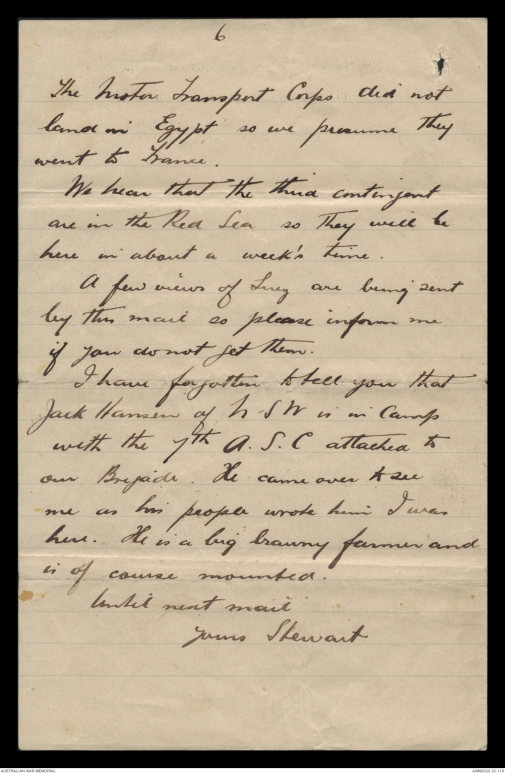 6
The Motor Transport Corps did not
land in Egypt so we presume they
went to France.
We hear that the third contingent
are in the Red Sea so they will be
here in about a week's time.
A few views of Suez are being sent
by this mail so please inform me
if you do not get them.
I have forgotten to tell you that
Jack Hansen of N S W is in Camp
with the 7th A. S. C attached to
our Brigade. He came over to see
me as his people wrote him I was
here. He is a big brawny farmer and
is of course mounted.
Until next mail
yours Stewart
AUSTRALIAN WAR MEMORIAL